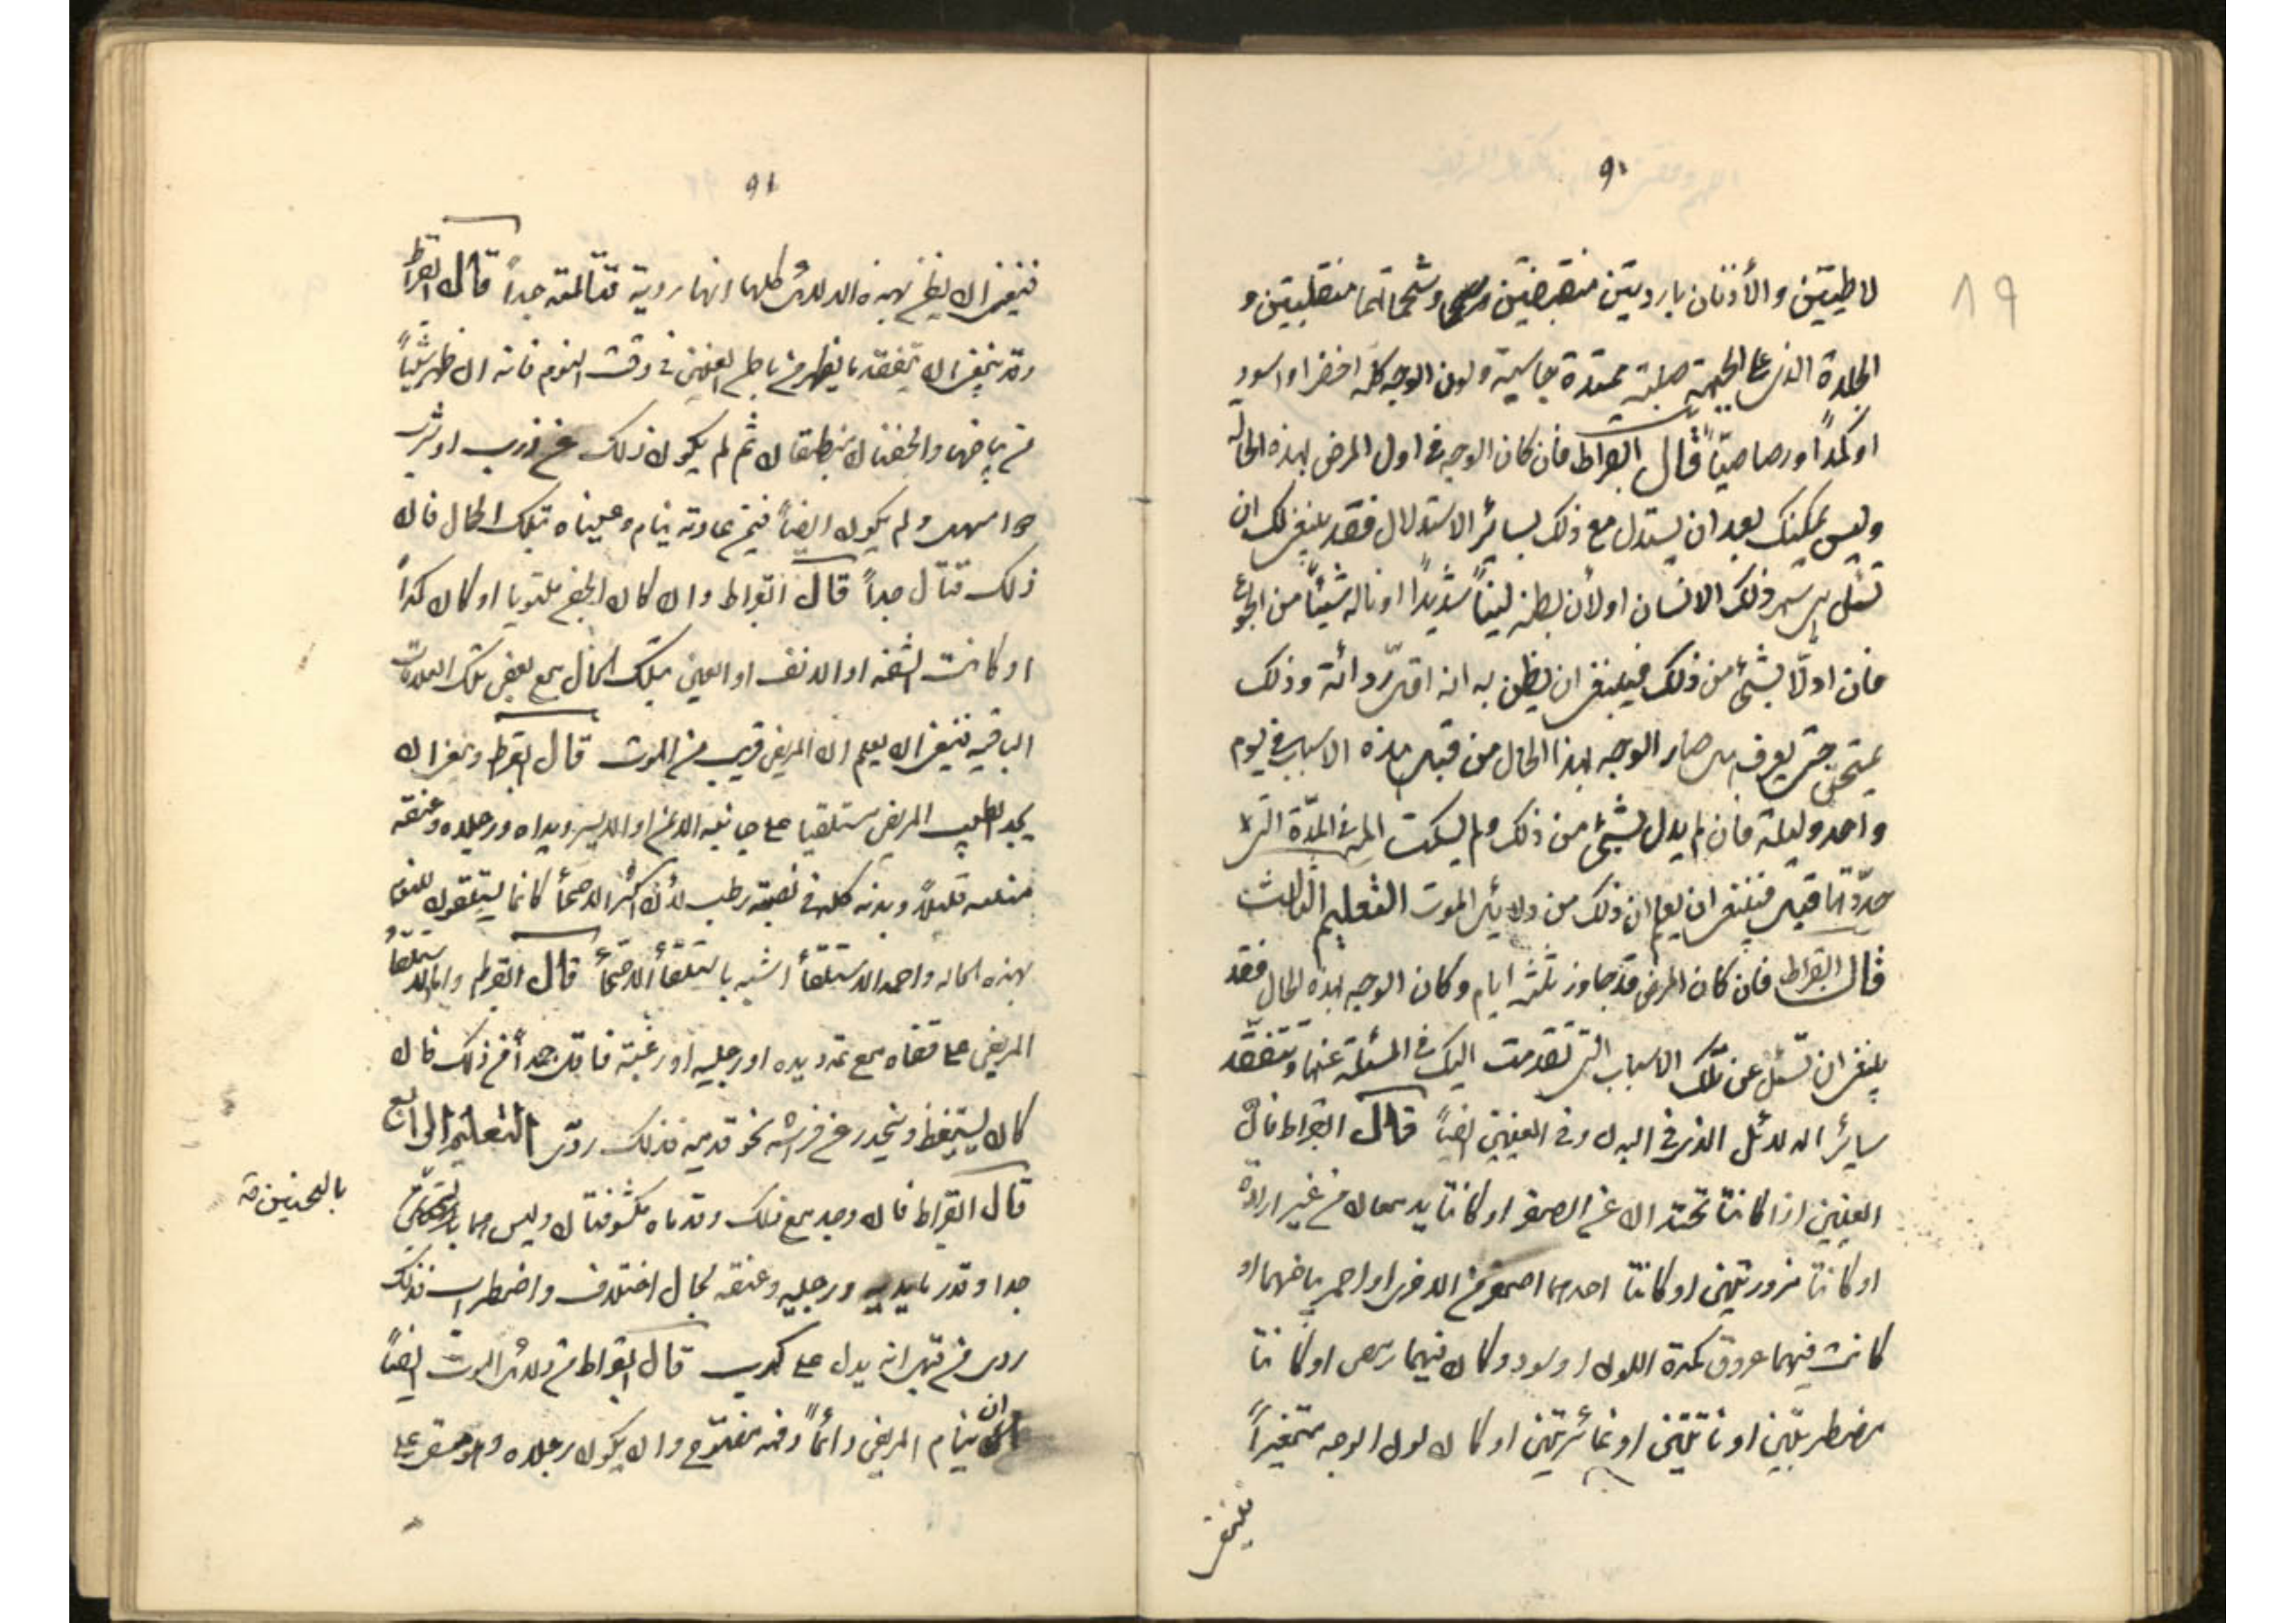 ٩٠
لاطيتين والأذنان باردتين منقبضتين وشحماتهما منقلبتين و
الجلدة التي على الجبهة صلبة ممتدة جاسية ولون الوجه كله اخضر او اسود
او كمداً او رصاصيّاً قال ابقراط فان كان الوجه في اول المرض بهذه الحالة
وليس يمكنك بعد ان يستدل مع ذلك بسائر الاستدلال فقد ينبغي لك ان
تسئل هل سهر ذلك الانسان او لأن بطنه ليناً شديداً او ناله شيئاً من الجوع
فان اولّا بشئ من ذلك فينبغي ان يظن به انه اقل رداءة وذلك
يمتحن حتى يعرف هل صار الوجه بهذا الحال من قبل هذه الاسباب في يوم
واحد وليلة فان لم يدل بشئ من ذلك ولم يسكت المرض في المدّة التي
حدّدتها قبل فينبغي ان يعلم ان ذلك من دلائل الموت التعليم الثالث
قال ابقراط فان كان المرض قد جاوز ثلثة ايام وكان الوجه بهذه الحال فقد
ينبغي ان تسئل عن تلك الاسباب التي تقدمت اليك في المسئلة عنها وتتفقّد
سائر الدلائل التي في البدن وفي العينين ايضاً قال ابقراط فان
العينين اذا كانتا تحيدان عن الضوء او كانتا يدمعان من غير ارادة
او كانتا مزورتين او كانتا احدهما اصغر من الاخرى او احمر بياضهما او
كانت فيهما عروق كمدة اللون او سود وكان فيهما رمص او كانتا
مضطربتين او ناتئتين او غائرتين او كان لون الوجه متغيراً
فينبغي
٨٩
٩١
فينبغي ان يظن بهذه الدلائل كلها انها ردية قتالة جداً قال ابقراط
وقد ينبغي ان يتفقد ما يظهر من باطن العينين في وقت النوم فانه ان ظهر شيئاً
من بياضهما والجفنان منطبقان ثم لم يكون ذلك عن ذرب او شرب
دواء مسهل ولم يكون ايضاً فيمن عادته ينام وعيناه بتلك الحال فان
ذلك قتال جداً قال ابقراط وان كان الجفن ملتويا او كان كمداً
او كانت الشفه او الانف او العين بتلك الحال مع بعض تلك العلامات
الباقيه فينبغي ان يعلم ان المريض قريب من الموت قال ابقراط وينبغي ان
يجد الطبيب المريض مستلقيا على جانبه الايمن او الايسر ويداه ورجلاه وعنقه
منثنيه قليلاً وبدنه كله في نصبته رطب لأن اكثر الاصحاء كانما يستلقون للنوم
بهذه الحاله واحمد الاستلقاء اشبه باستلقاء الاصحاء قال ابقراط واما استلقاء
المريض على قفاه مع تمدد يده او رجليه او رغبته فاقل حمداً من ذلك فان
كان يستيقظ وينحدر عن فرشه نحو قدميه فذلك ردئ التعليم الرابع
قال ابقراط فان وجد مع ذلك وقدماه مكشوفتان وليس هما بالسخنتين
جدا وقدر ما يديه ورجليه وعنقه بحال اختلاف واضطراب فذلك
ردى من قبل انه يدل على كرب قال ابقراط من دلائل الموت ايضاً
ان ينام المريض دائماً وفمه مفتوح وان يكون رجلاه وهو مستلق على
بالسخينين خ